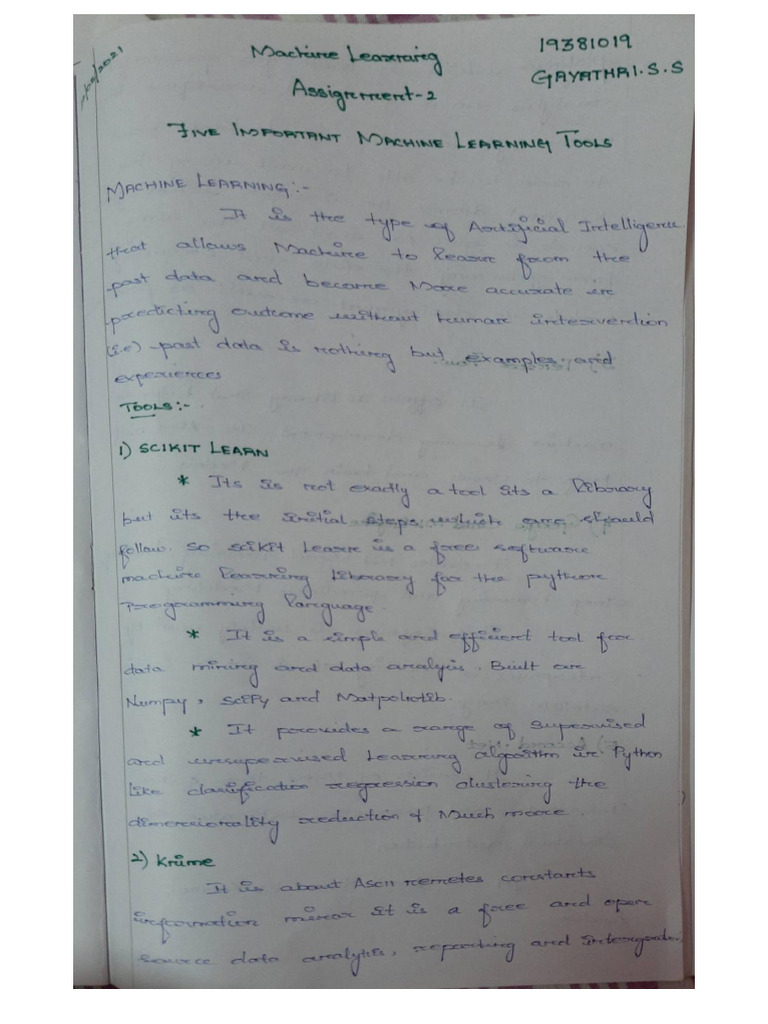 /02/2021
Machine Learning
19381019
Assignment-2
GAYATHRI.S.S
FIVE IMPORTANT MACHINE LEARNING TOOLS
MACHINE LEARNING:-
It is the type of Artificial Intelligence
that allows Machine to learn from the
past data and become More accurate in
predicting outcome without human intervention
(i.e) past data is nothing but examples and
experiences
TOOLS:-
1) SCIKIT LEARN
* Its is not exactly a tool its a library
but its the initial steps which are should
follow. So scikit Learn is a free software
machine learning library for the python
Programming language
* It is a simple and efficient tool for
data mining and data analysis. Built on
Numpy, SciPy and Matpolotlib.
* It provides a range of supervised
and unsupervised Learning algorithm in Python
like classification regression clustering the
dimensionality reduction & Much more.
2) Knime
It is about Ascii constants
information miner it is a free and open
source data analytis, reporting and